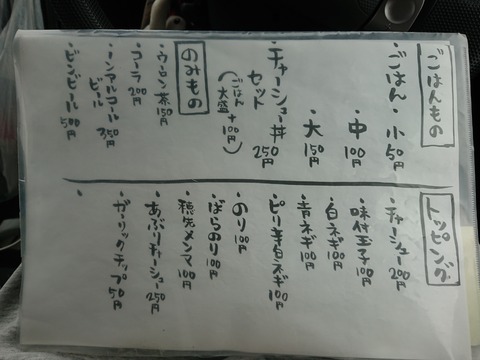 ごはんもの
・ごはん・小 50円
・中 100円
・大 150円
・チャーシュー丼 250円
セット
(ごはん大盛+100円)
のみもの
・ウーロン茶 150円
・コーラ 200円
・ノンアルコールビール 350円
・ビンビール 500円
トッピング
・チャーシュー 200円
・味付玉子 100円
・白ネギ 100円
・青ネギ 100円
・ピリ辛白ネギ 100円
・のり 100円
・ばらのり 100円
・穂先メンマ 100円
・あぶりチャーシュー 250円
・ガーリックチップ 50円
・